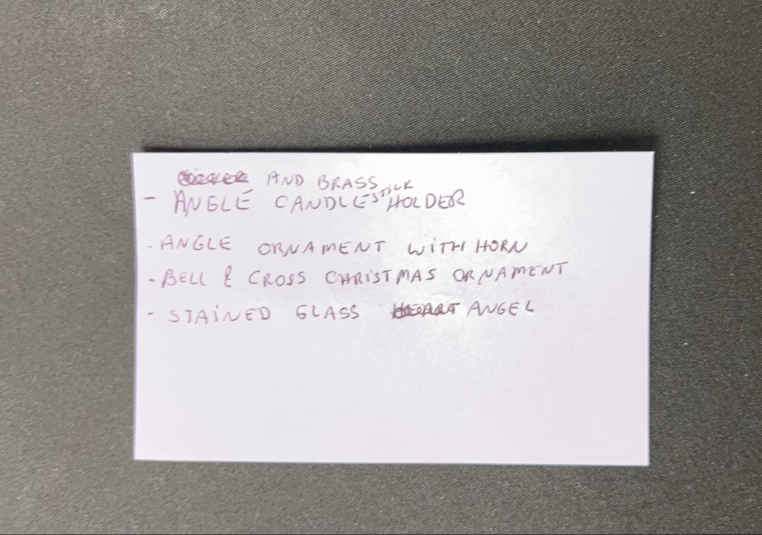 AND BRASS
- ANGLE CANDLESTICK HOLDER
- ANGLE ORNAMENT WITH HORN
- BELL & CROSS CHRISTMAS ORNAMENT
- STAINED GLASS HEART ANGEL